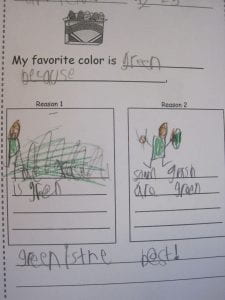 My favorite color is green
because
Reason 1
Reason 2
is green
are green
green is the best!